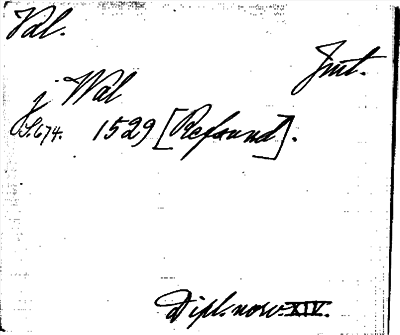 Val.
Int.
j Wal
S. 674. 1529 [Refsund].
Dipl. norv. XIV.